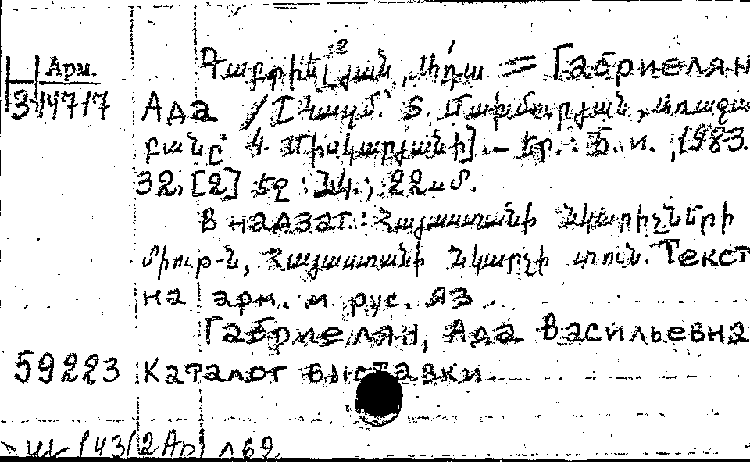 Арм.
3/4717
Գաբրիելյան, Ադա = Габриелян
Ада / [Կազմ.՝ Ծ. , առաջա
բանը՝ Կ. Միքայելյանի] – Եր.: Б. и., 1983.
32, [2] եջ: նկ.; 22 սմ.
В надзаг.: Հայաստանի նկարիչների
միութ-ն, Հայաստանի նկարչի տուն. Текст
на арм. и рус. яз.
Габриелян, Ада Васильевна
59223 Каталог выставки